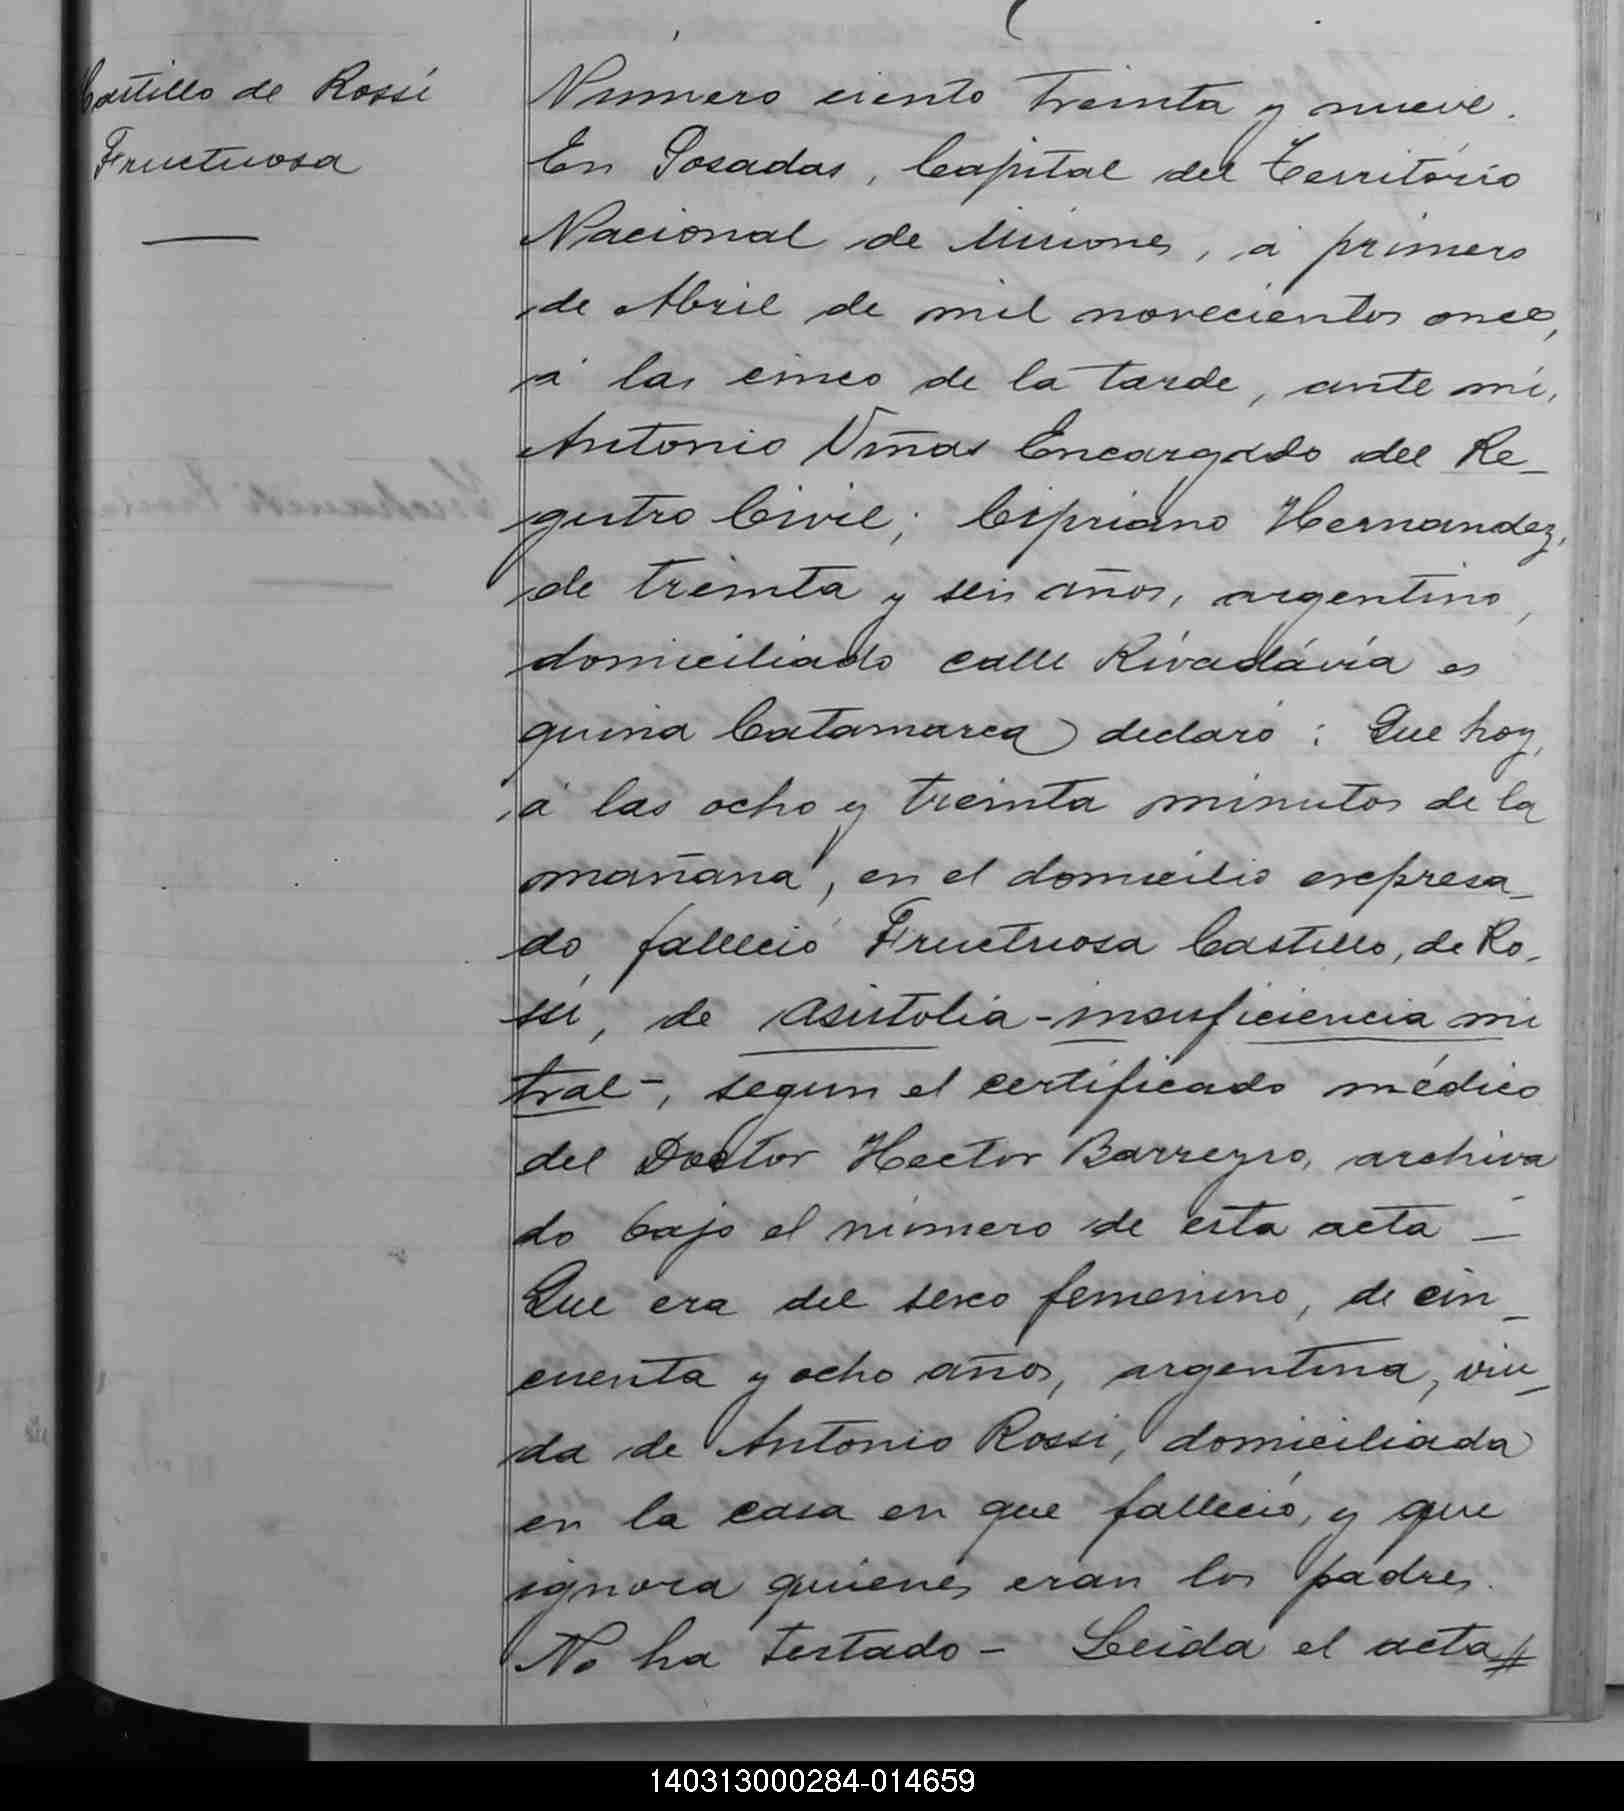 Castillo de Rossi
Fructuosa
Número ciento treinta y nueve.
En Posadas, Capital del Territorio
Nacional de Misiones, á primero
de Abril de mil novecientos once,
á las cinco de la tarde, ante mí,
Antonio Viñas Encargado del Re-
gistro Civil; Cipriano Hernandez,
de treinta y seis años, argentino,
domiciliado calle Rivadávia es
quina Catamarca declaró: Que hoy,
á las ocho y treinta minutos de la
mañana, en el domicilio expresa-
do, falleció Fructuosa Castillo, de Ro-
ssi, de asistolia - insuficiencia mi
tral -, segun el certificado médico
del Doctor Hector Barreyro, archiva
do bajo el número de esta acta -
Que era del sexo femenino, de cin-
cuenta y ocho años, argentina, viu-
da de Antonio Rossi, domiciliada
en la casa en que falleció, y que
ignora quienes eran los padres.
No ha testado - Leida el acta//
140313000284-014659